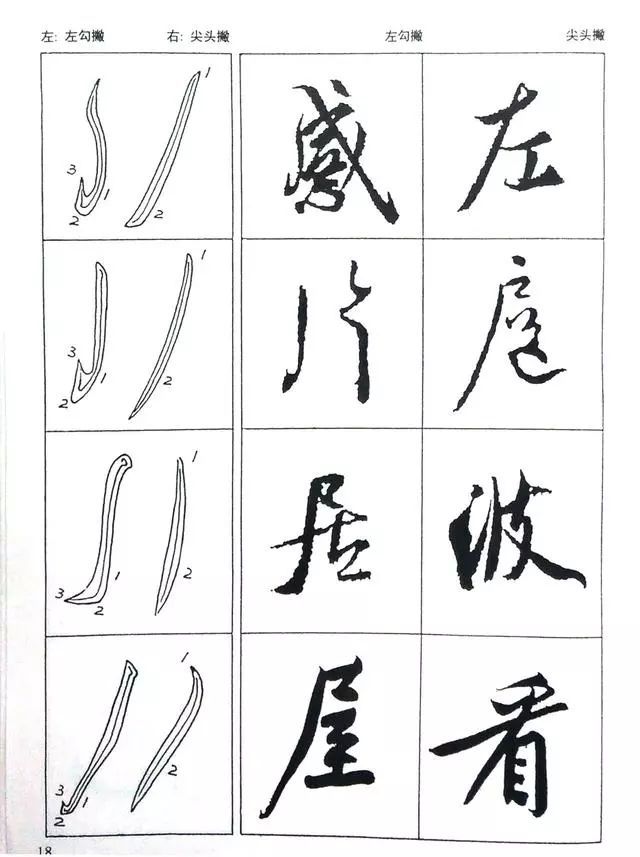 左: 左勾撇 右: 尖头撇 左勾撇 尖头撇
1 3 1 2 2 感 左
1 3 1 2 2
1 1 3 2 2 居 波
1 3 1 2 2 屋 看
18